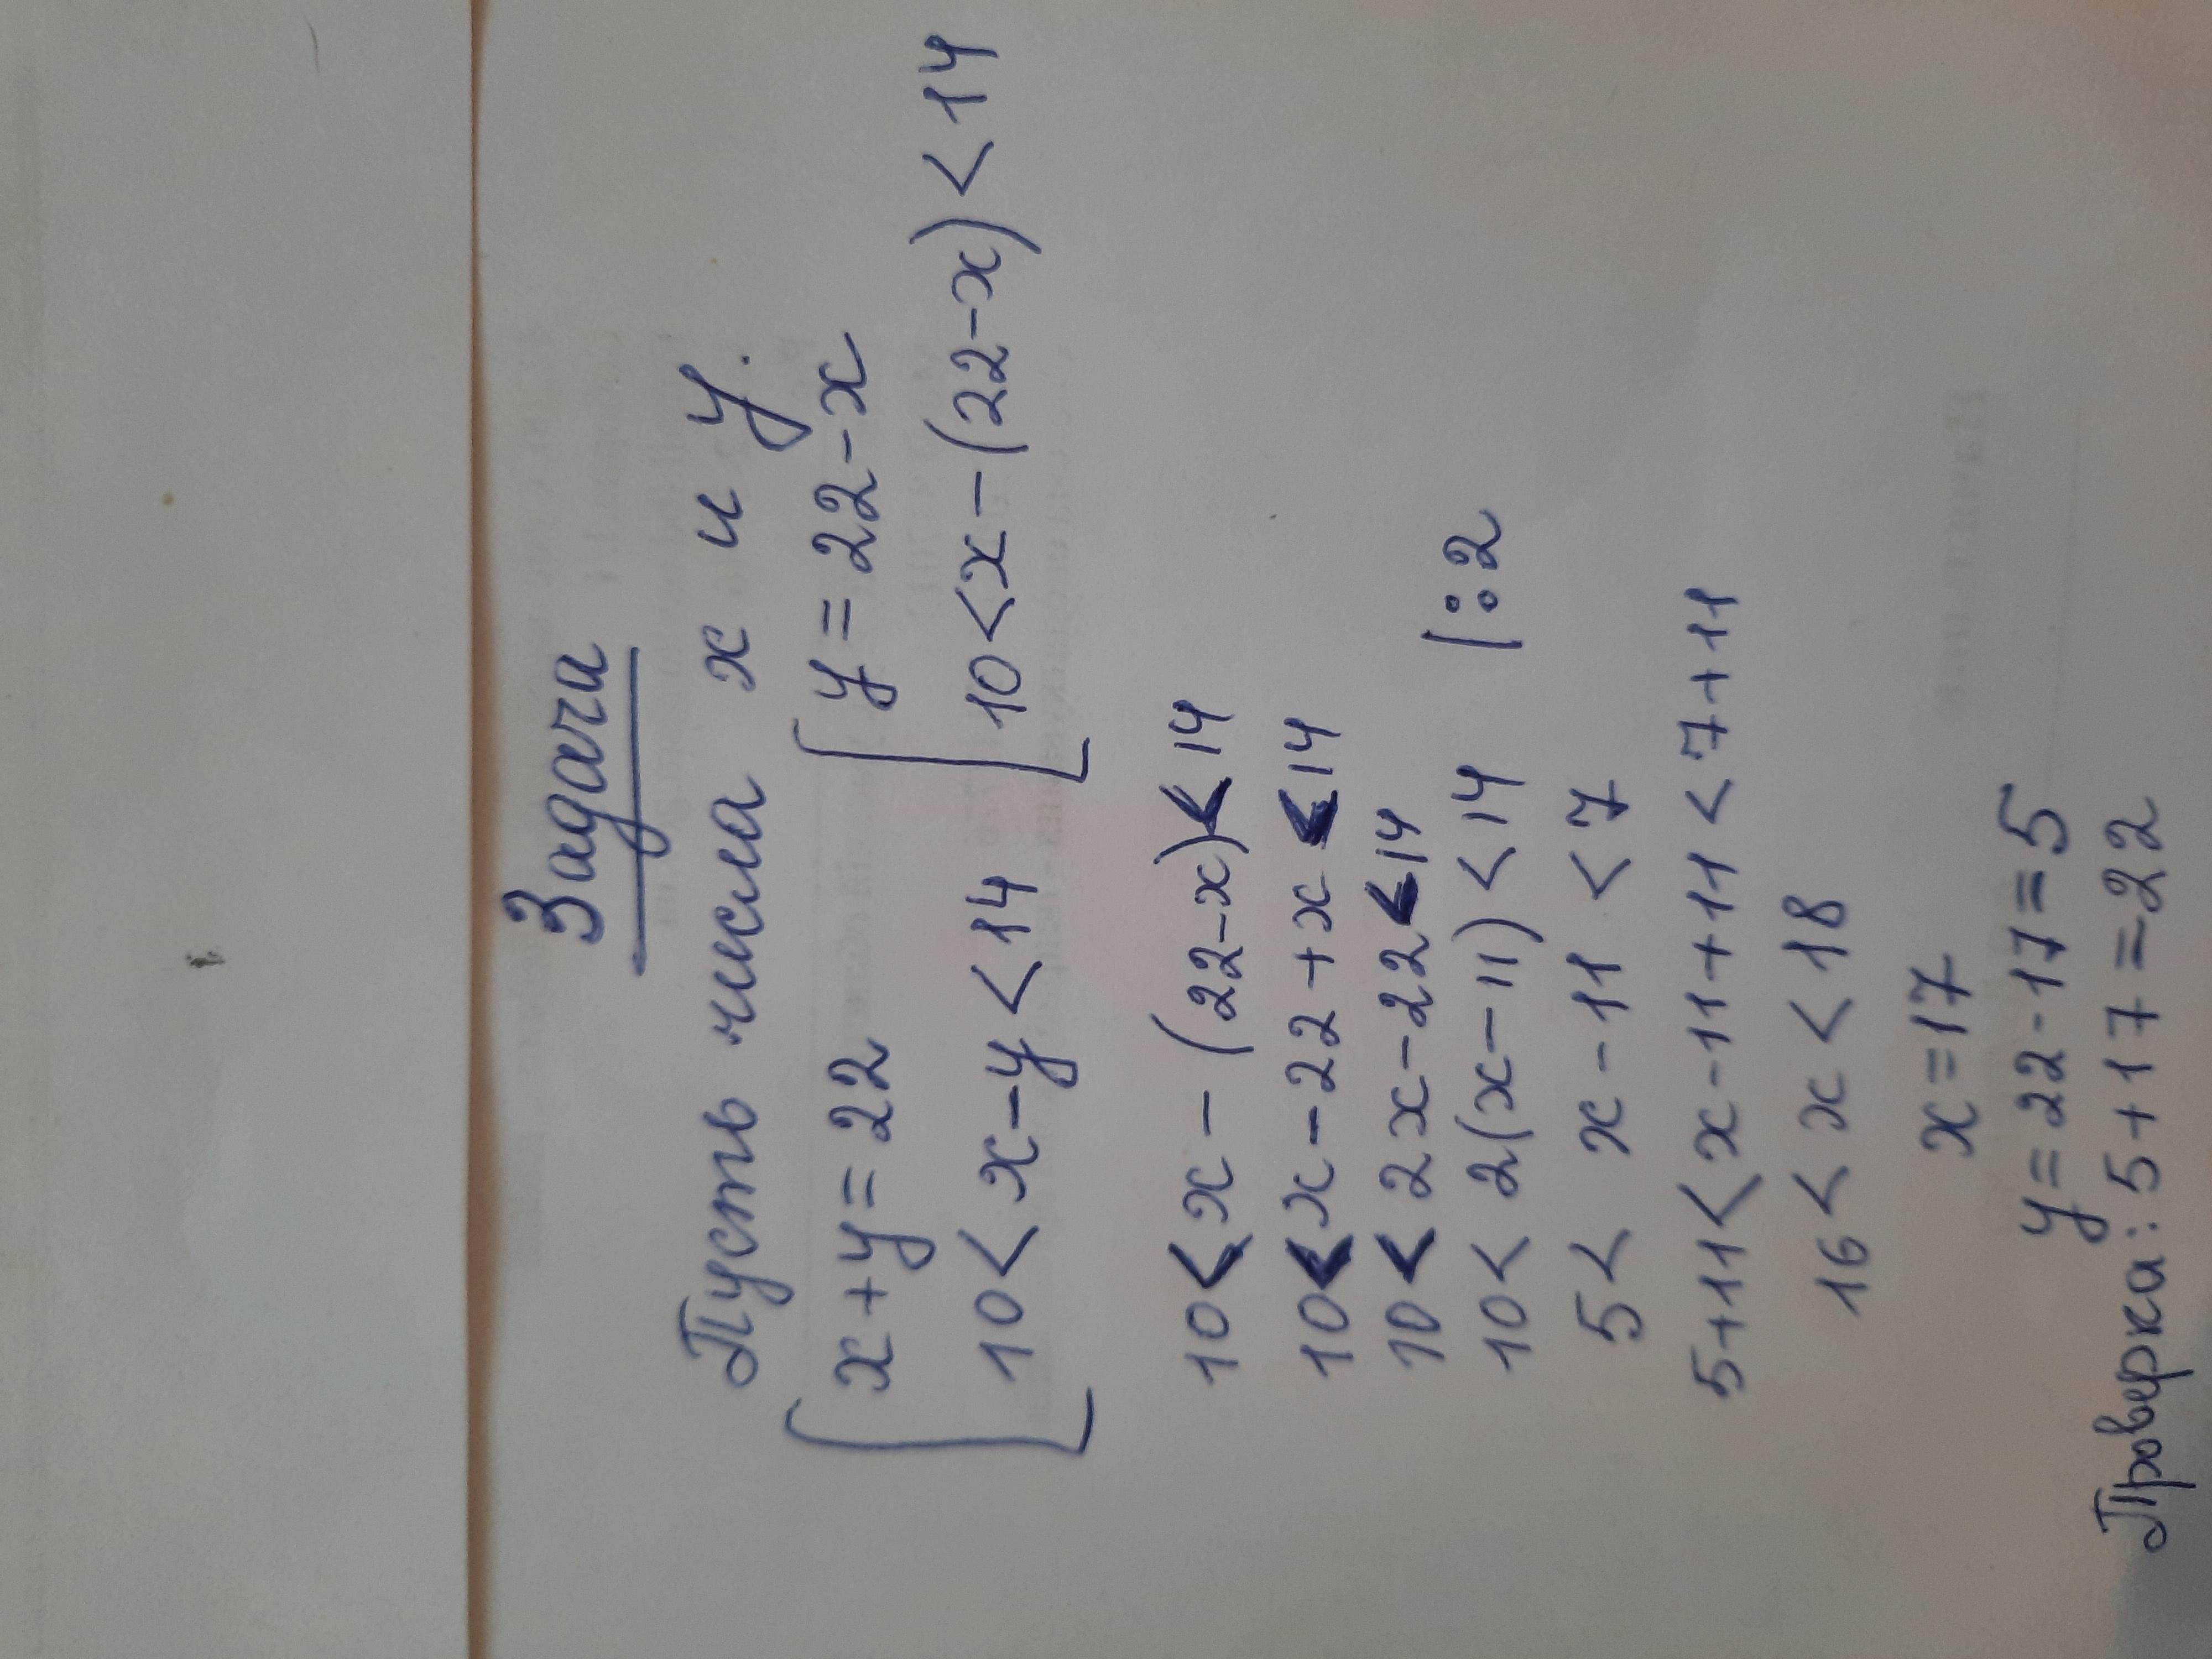 Задача
Пусть числа x и y.
[x+y=22 [y=22-x
10<x-y<14 10<x-(22-x)<14
10<x-(22-x)<14
10<x-22+x<14
10<2x-22<14
10<2(x-11)<14 |:2
5<x-11<7
5+11<x-11+11<7+11
16<x<18
x=17
y=22-17=5
Проверка: 5+17=22